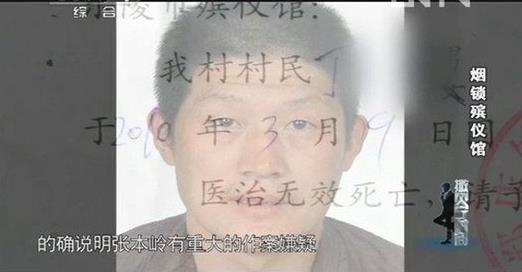 综合
市殡仪馆：
我村村民丁
于2010年3月9日
医治无效死亡，请予
烟锁殡仪馆
的确说明张本岭有重大的作案嫌疑